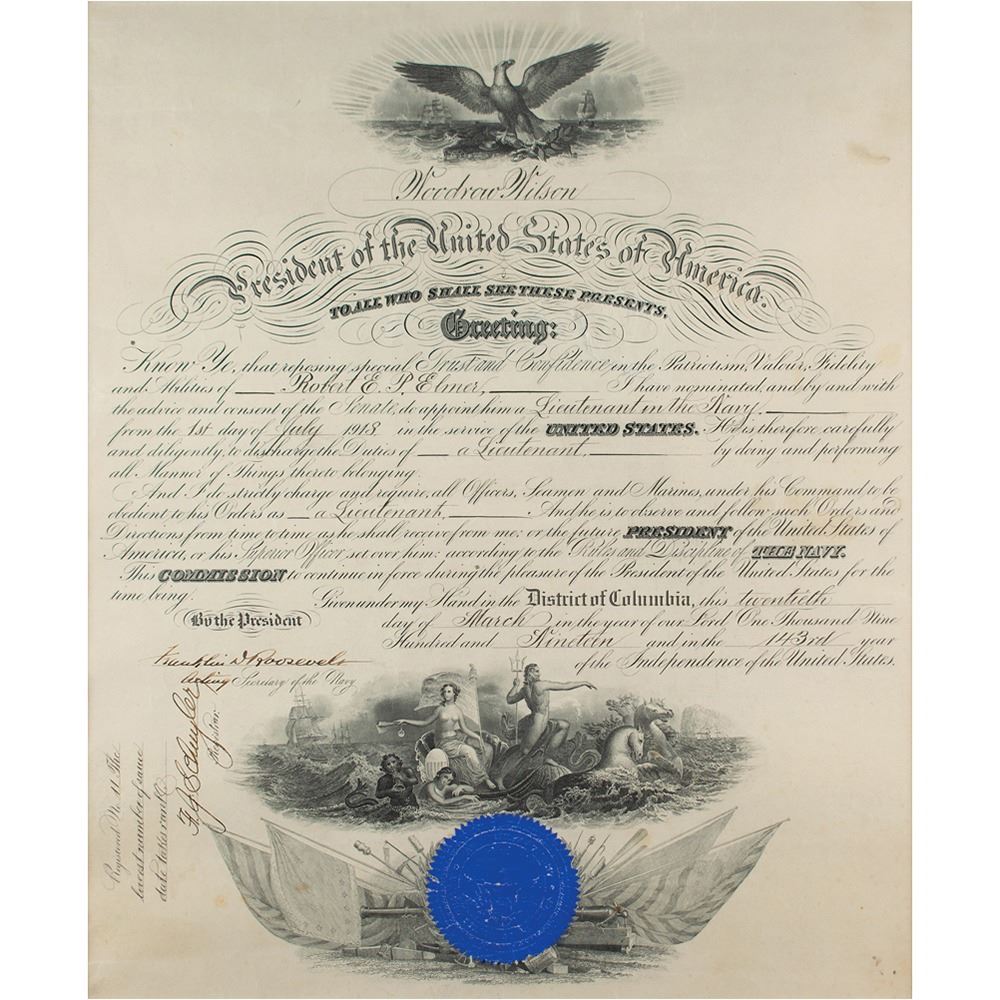 Woodrow Wilson
President of the United States of America.
TO ALL WHO SHALL SEE THESE PRESENTS,
Greeting:
Know Ye, that reposing special Trust and Confidence in the Patriotism, Valour, Fidelity
and Abilities of Robert E. P. Elmer, I have nominated, and by and with
the advice and consent of the Senate, do appoint him a Lieutenant in the Navy,
from the 1st day of July 1918 in the service of the UNITED STATES. He is therefore carefully
and diligently, to discharge the Duties of a Lieutenant, by doing and performing
all Manner of Things thereto belonging.
And I do strictly charge and require, all Officers, Seamen and Marines, under his Command to be
obedient, to his Orders as a Lieutenant. And he is to observe and follow such Orders and
Directions from time to time as he shall receive from me; or the future PRESIDENT of the United States of
America, or his Superior Officer set over him; according to the Rules and Discipline of THE NAVY.
This COMMISSION to continue in force during the pleasure of the President of the United States for the
time being.
Given under my Hand in the District of Columbia, this twentieth
By the President
day of March in the year of our Lord One Thousand Nine
Hundred and Nineteen and in the 143rd year
of the Independence of the United States.
Franklin D Roosevelt
Acting Secretary of the Navy
F G Schuyler
Registrar
Registered No. 11 The
lowest number of same
date takes rank